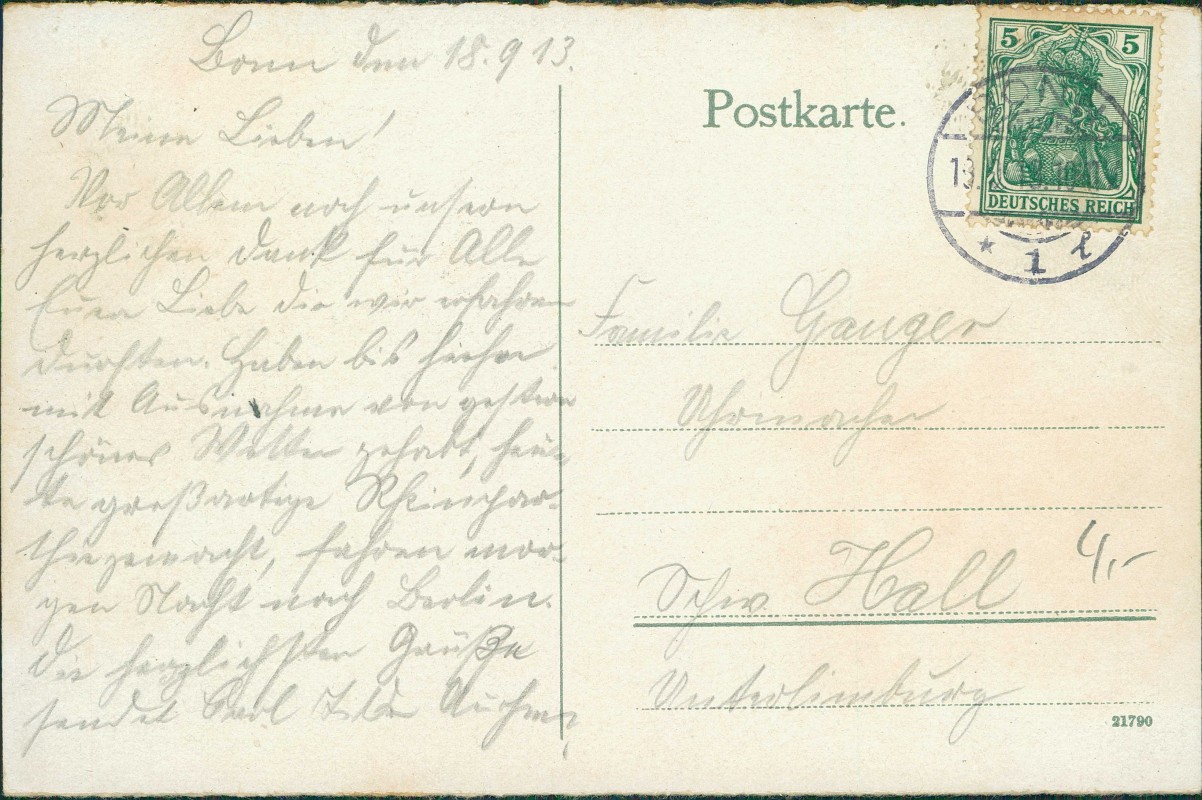 Bonn den 18.9.13.
Meine Lieben!
Vor Allem noch unsern
herzlichen Dank für Alle
Eurer Liebe die wir erfahren
durften. Haben bis hieher
mit Ausnahme von gestern
schönes Wetter gehabt, heu-
te großartige Rheinpar-
thie gemacht, fahren mor-
gen Nacht nach Berlin.
Die herzlichsten Grüße
sendet Karl
Postkarte.
5 5
DEUTSCHES REICH
BONN
1 l
Familie Gauger
Uhrmacher
Schw Hall
4,-
Unterlimburg
21790